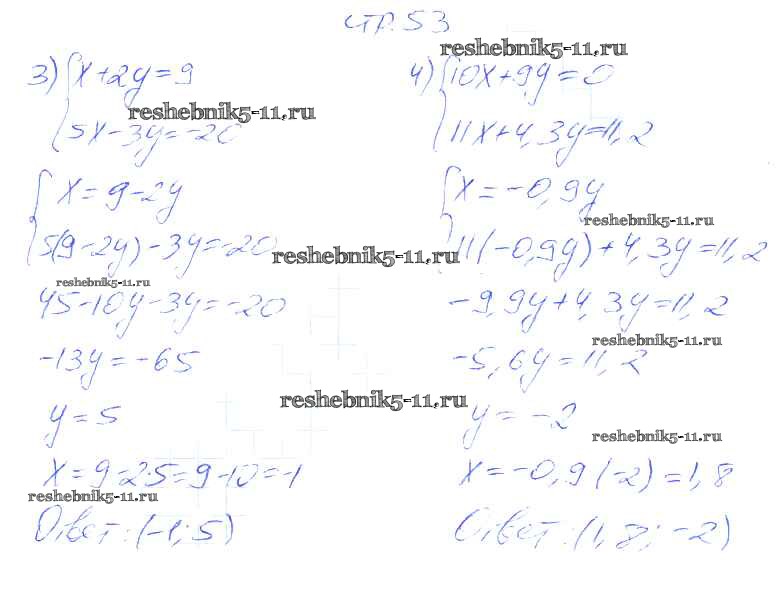 стр. 53
reshebnik5-11.ru
3) { x + 2y = 9
reshebnik5-11.ru
5x - 3y = -20
{ x = 9 - 2y
5(9 - 2y) - 3y = -20
reshebnik5-11.ru
reshebnik5-11.ru
45 - 10y - 3y = -20
-13y = -65
reshebnik5-11.ru
y = 5
x = 9 - 2·5 = 9 - 10 = -1
reshebnik5-11.ru
Ответ: (-1; 5)
4) { 10x + 9y = 0
11x + 4,3y = 11,2
{ x = -0,9y
reshebnik5-11.ru
11(-0,9y) + 4,3y = 11,2
-9,9y + 4,3y = 11,2
reshebnik5-11.ru
-5,6y = 11,2
y = -2
reshebnik5-11.ru
x = -0,9(-2) = 1,8
Ответ: (1,8; -2)